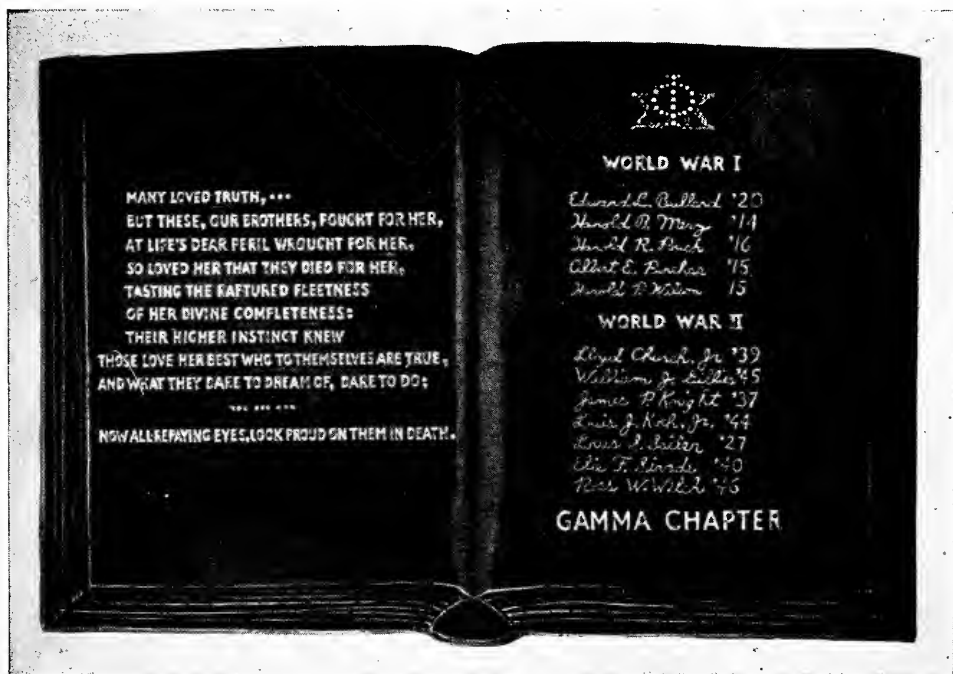 MANY LOVED TRUTH, ...
BUT THESE, OUR BROTHERS, FOUGHT FOR HER,
AT LIFE'S DEAR PERIL WROUGHT FOR HER,
SO LOVED HER THAT THEY DIED FOR HER,
TASTING THE RAPTURED FLEETNESS
OF HER DIVINE COMPLETENESS:
THEIR HIGHER INSTINCT KNEW
THOSE LOVE HER BEST WHO TO THEMSELVES ARE TRUE,
AND WHAT THEY DARE TO DREAM OF, DARE TO DO;
... ... ...
NOW ALL REPAYING EYES, LOOK PROUD ON THEM IN DEATH.
WORLD WAR I
Edward L. Bullard '20
Harold B. Merz '14
Harold R. Buck '16
Albert E. '15
Harold P. Wilson 15
WORLD WAR II
Lloyd Church, Jr '39
William J. '45
James P. Knight '37
Louis J. Koch, Jr. '44
Louis '27
F. '40
W. Welch '46
GAMMA CHAPTER